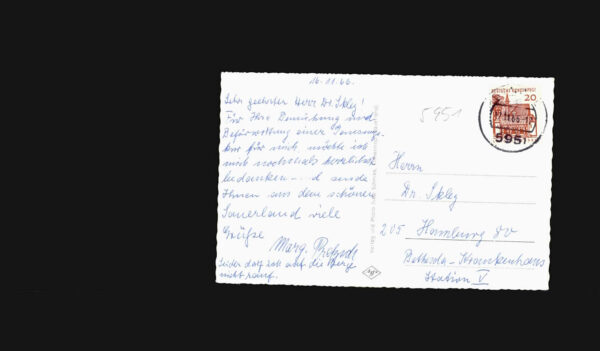 16.11.66.
Sehr geehrter Herr Dr. Skley!
Für Ihre Bemühung und
Befürwortung einer Genesungs-
kur für mich möchte ich
mich nochmals herzlichst
bedanken und sende
Ihnen aus dem schönen
Sauerland viele
Grüße
Marg.
Leider darf ich auf die Berge
nicht rauf.
5951
DEUTSCHE BUNDESPOST
20
5951
Herrn
Dr. Skley
205 Hamburg 80
Bethesda-Krankenhaus
Station V
Agfa